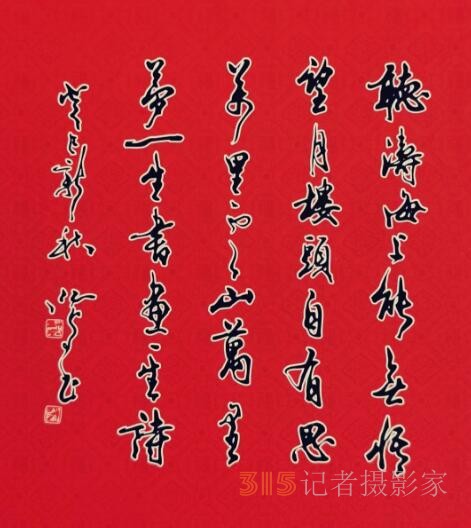 聽濤海上能無悟
望月樓頭自有思
萬里山萬里
夢一生書畫一生詩
癸巳新秋
315记者摄影家